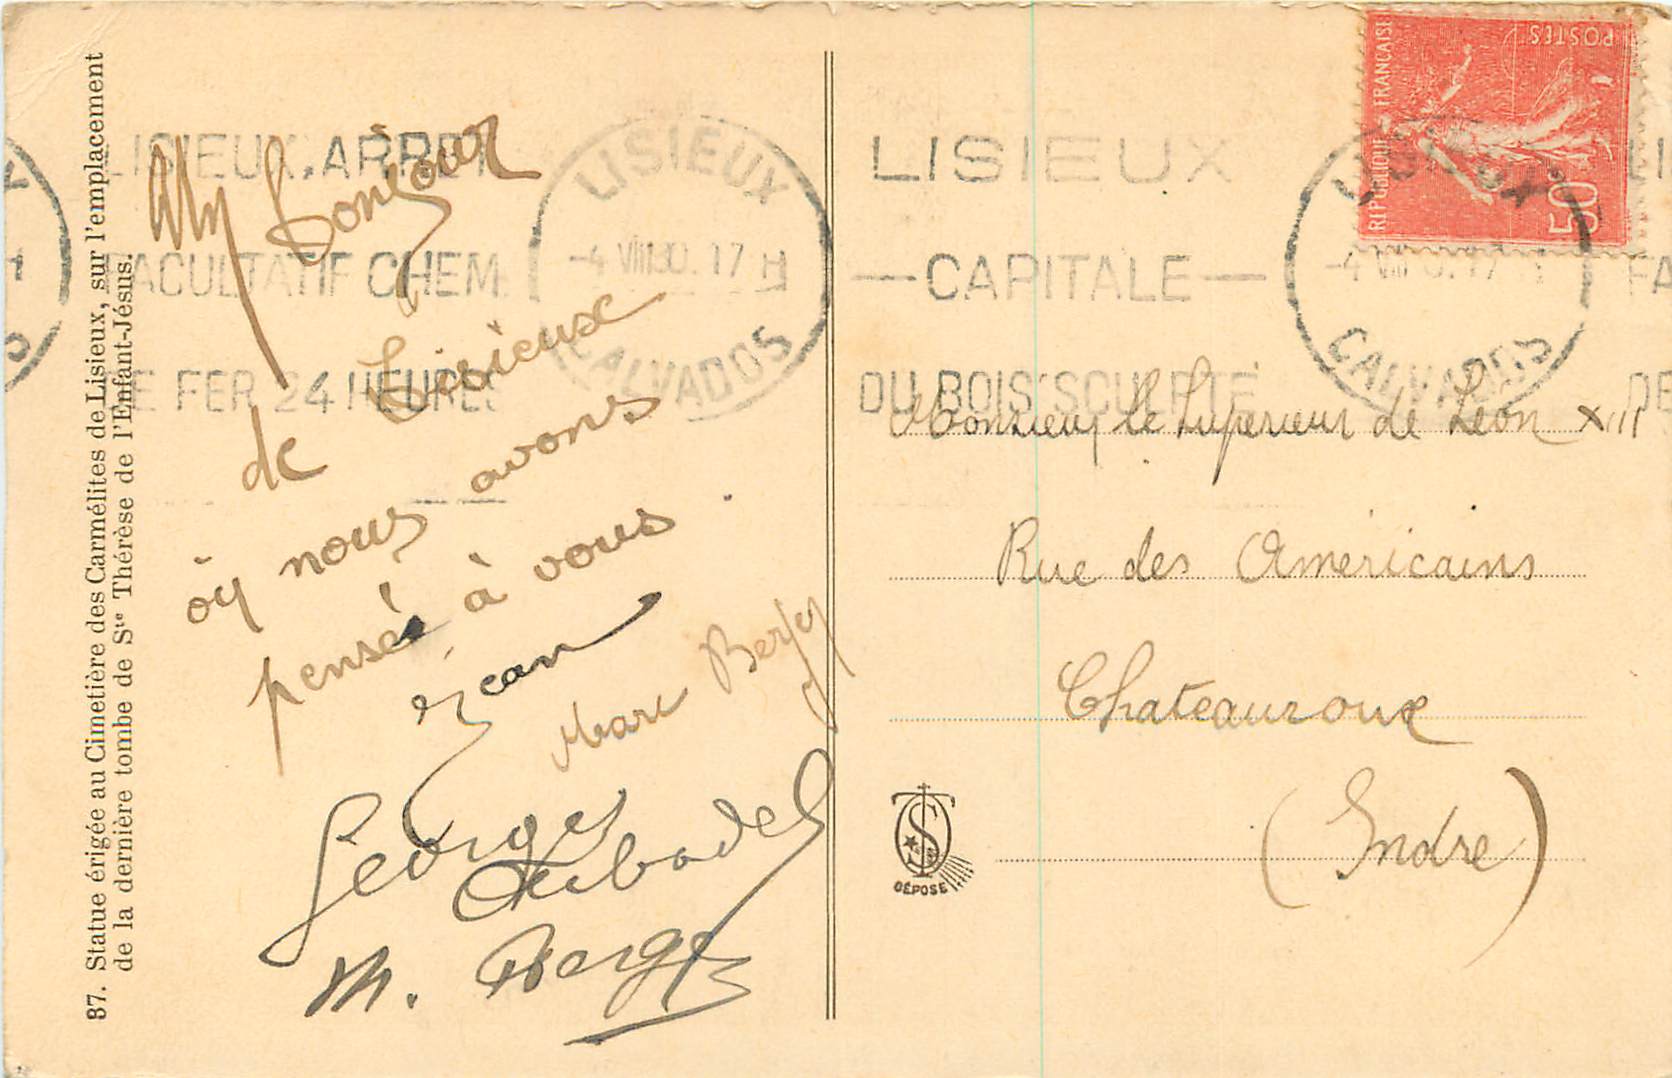 87. Statue érigée au Cimetière des Carmélites de Lisieux, sur l'emplacement
de la dernière tombe de Ste Thérèse de l'Enfant-Jésus.
LISIEUX, ARRET
FACULTATIF CHEM.
DE FER 24 HEURES
LISIEUX
-4 VIII 30. 17 H
CALVADOS
Un bonjour
de Lisieux
où nous avons
pensé à vous
Jean
Marc
Georges
M.
LISIEUX
— CAPITALE —
DU BOIS SCULPTÉ
LISIEUX
CALVADOS
RÉPUBLIQUE FRANÇAISE
POSTES
50c
Monsieur le Supérieur de Léon XIII
Rue des Américains
Chateauroux
(Indre)
DÉPOSÉ